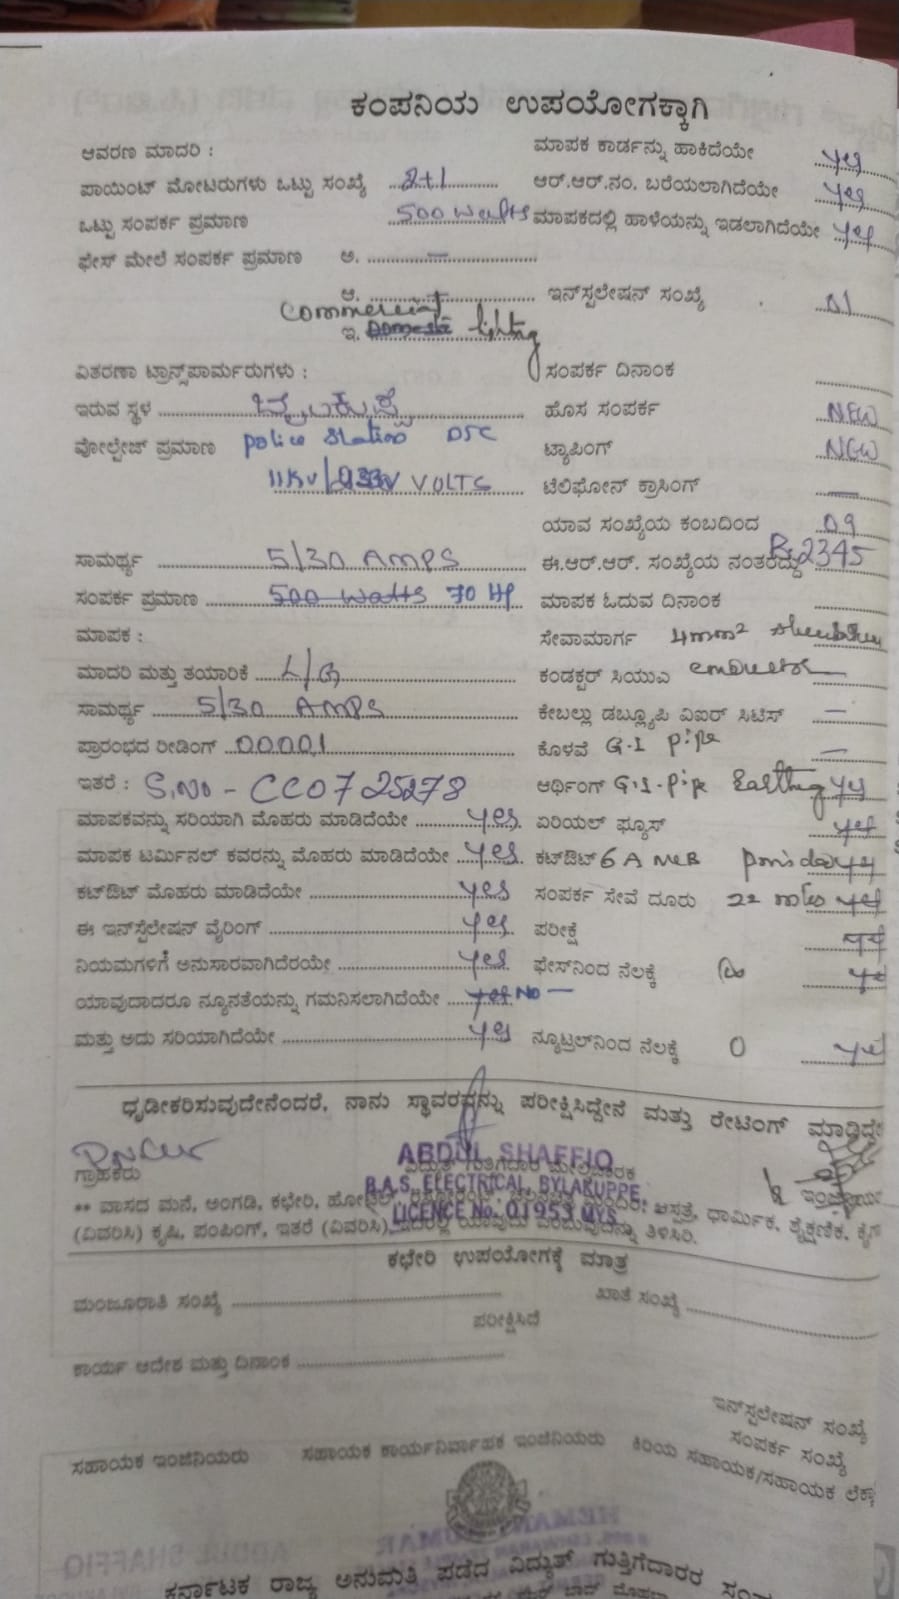 ಕಂಪನಿಯ ಉಪಯೋಗಕ್ಕಾಗಿ
ಆವರಣ ಮಾದರಿ :
ಪಾಯಿಂಟ್ ಮೋಟರುಗಳು ಒಟ್ಟು ಸಂಖ್ಯೆ 2+1
ಒಟ್ಟು ಸಂಪರ್ಕ ಪ್ರಮಾಣ 500 watts
ಫೇಸ್ ಮೇಲೆ ಸಂಪರ್ಕ ಪ್ರಮಾಣ ಅ. —
ಆ.
commercial
ಇ. lighting
ವಿತರಣಾ ಟ್ರಾನ್ಸ್‌ಪಾರ್ಮರುಗಳು :
ಇರುವ ಸ್ಥಳ ಬೈಲಕುಪ್ಪೆ
ವೋಲ್ಟೇಜ್ ಪ್ರಮಾಣ police station
11KV/ VOLTS
ಸಾಮರ್ಥ್ಯ 5/30 AMPS
ಸಂಪರ್ಕ ಪ್ರಮಾಣ 500 watts 70 HP
ಮಾಪಕ :
ಮಾದರಿ ಮತ್ತು ತಯಾರಿಕೆ L/G
ಸಾಮರ್ಥ್ಯ 5/30 AMPS
ಪ್ರಾರಂಭದ ರೀಡಿಂಗ್ 00001
ಇತರೆ : S.No - CC0725278
ಮಾಪಕವನ್ನು ಸರಿಯಾಗಿ ಮೊಹರು ಮಾಡಿದೆಯೇ yes
ಮಾಪಕ ಟರ್ಮಿನಲ್ ಕವರನ್ನು ಮೊಹರು ಮಾಡಿದೆಯೇ yes
ಕಟ್‌ಔಟ್ ಮೊಹರು ಮಾಡಿದೆಯೇ yes
ಈ ಇನ್‌ಸ್ಟಲೇಷನ್ ವೈರಿಂಗ್ yes
ನಿಯಮಗಳಿಗೆ ಅನುಸಾರವಾಗಿದೆರಯೇ yes
ಯಾವುದಾದರೂ ನ್ಯೂನತೆಯನ್ನು ಗಮನಿಸಲಾಗಿದೆಯೇ yes NO —
ಮತ್ತು ಅದು ಸರಿಯಾಗಿದೆಯೇ yes
ಮಾಪಕ ಕಾರ್ಡನ್ನು ಹಾಕಿದೆಯೇ yes
ಆರ್.ಆರ್.ನಂ. ಬರೆಯಲಾಗಿದೆಯೇ yes
ಮಾಪಕದಲ್ಲಿ ಹಾಳೆಯನ್ನು ಇಡಲಾಗಿದೆಯೇ yes
ಇನ್‌ಸ್ಪಲೇಷನ್ ಸಂಖ್ಯೆ 01
ಸಂಪರ್ಕ ದಿನಾಂಕ
ಹೊಸ ಸಂಪರ್ಕ NEW
ಟ್ಯಾಪಿಂಗ್ NEW
ಟೆಲಿಫೋನ್ ಕ್ರಾಸಿಂಗ್ —
ಯಾವ ಸಂಖ್ಯೆಯ ಕಂಬದಿಂದ 09
ಈ.ಆರ್.ಆರ್. ಸಂಖ್ಯೆಯ ನಂತರದ್ದು 2345
ಮಾಪಕ ಓದುವ ದಿನಾಂಕ
ಸೇವಾಮಾರ್ಗ 4mm²
ಕಂಡಕ್ಟರ್ ಸಿಯುಎ
ಕೇಬಲ್ಲು ಡಬ್ಲ್ಯೂಪಿ ವಿಐರ್ ಸಿಟಿಸ್ —
ಕೊಳವೆ G.I pipe —
ಆರ್ಥಿಂಗ್ G.I. pipe Earthing yes
ಏರಿಯಲ್ ಫ್ಯೂಸ್ yes
ಕಟ್‌ಔಟ್ 6A MCB yes
ಸಂಪರ್ಕ ಸೇವೆ ದೂರು 22 yes
ಪರೀಕ್ಷೆ yes
ಫೇಸ್‌ನಿಂದ ನೆಲಕ್ಕೆ yes
ನ್ಯೂಟ್ರಲ್‌ನಿಂದ ನೆಲಕ್ಕೆ 0 yes
ಧೃಡೀಕರಿಸುವುದೇನೆಂದರೆ, ನಾನು ಸ್ಥಾವರವನ್ನು ಪರೀಕ್ಷಿಸಿದ್ದೇನೆ ಮತ್ತು ರೇಟಿಂಗ್
ABDUL SHAFFIQ
ಗ್ರಾಹಕರು ವಿದ್ಯುತ್ ಗುತ್ತಿಗೆದಾರ ಮೇಲ್ವಿಚಾರಕ
B.A.S. ELECTRICAL, BYLAKUPPE,
** ವಾಸದ ಮನೆ, ಅಂಗಡಿ, ಕಛೇರಿ, ಆಸ್ಪತ್ರೆ, ಧಾರ್ಮಿಕ, ಶೈಕ್ಷಣಿಕ,
LICENCE No. 01953 MYS
(ವಿವರಿಸಿ) ಕೃಷಿ, ಪಂಪಿಂಗ್, ಇತರೆ (ವಿವರಿಸಿ) ಇದರಲ್ಲಿ ಯಾವುದು ಎಂಬುವುದನ್ನು ತಿಳಿಸಿರಿ.
ಕಛೇರಿ ಉಪಯೋಗಕ್ಕೆ ಮಾತ್ರ
ಮಂಜೂರಾತಿ ಸಂಖ್ಯೆ ಖಾತೆ ಸಂಖ್ಯೆ
ಪರೀಕ್ಷಿಸಿದೆ
ಕಾರ್ಯ ಆದೇಶ ಮತ್ತು ದಿನಾಂಕ
ಇನ್‌ಸ್ಪಲೇಷನ್ ಸಂಖ್ಯೆ
ಸಂಪರ್ಕ ಸಂಖ್ಯೆ
ಸಹಾಯಕ ಇಂಜಿನಿಯರು ಸಹಾಯಕ ಕಾರ್ಯನಿರ್ವಾಹಕ ಇಂಜಿನಿಯರು ಕಿರಿಯ ಸಹಾಯಕ/ಸಹಾಯಕ
ಕರ್ನಾಟಕ ರಾಜ್ಯ ಅನುಮತಿ ಪಡೆದ ವಿದ್ಯುತ್ ಗುತ್ತಿಗೆದಾರರ